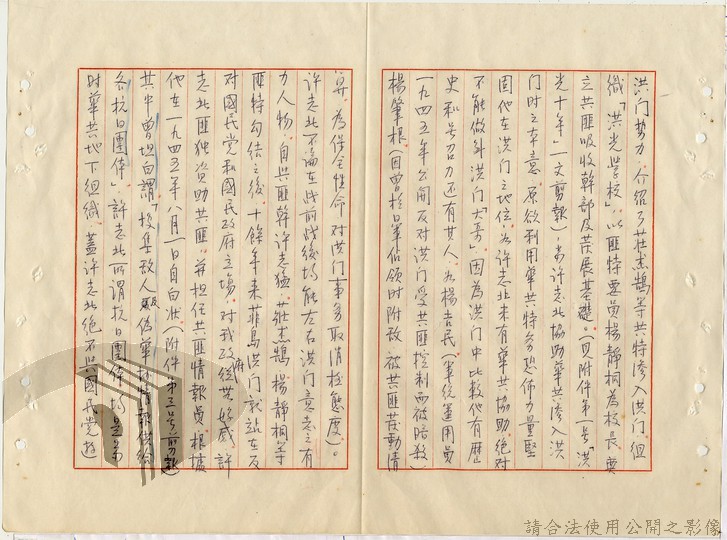 洪门势力，介绍了莊杰鹄等共特渗入洪门组
織「洪光学校」，以匪特要员楊靜桐為校長，奠
立共匪吸收幹部及茂展基礎。（見附件第一号「洪
光十年」一文剪報），当许志北協助華共渗入洪
门时之本意，原欲利用華共特务恐怖力量堅
固他在洪门之地位，如许志北未有華共協助绝对
不能做到洪门「大哥」，因為洪门中比較他有歷
史和号召力还有其人，如楊吉民（
一九四五年公開反对洪门受共匪控制而被暗殺）
楊肇根（因曾於日軍佔领时附敌，被共匪茂動清
算，為保全性命对洪门事务取消極態度）。
许志北不論在战前战後均能左右洪门意志之有
力人物，自與匪幹许志猛，莊杰鹄，楊靜桐等
匪特勾结之後，十餘年来菲島洪门就站在反
对國民党和國民政府立場，对我政府 许
志北匪独資助共匪，并担任共匪情報员，根據
他在一九四五年八月一日自白状（附件第三号剪報）
其中曾坦白謂「搜集敌人 偽軍 情報供给
各抗日團体」，许志北所謂抗日團体均是当
时華共地下组織，蓋许志北绝不與國民党遊
請合法使用公開之影像